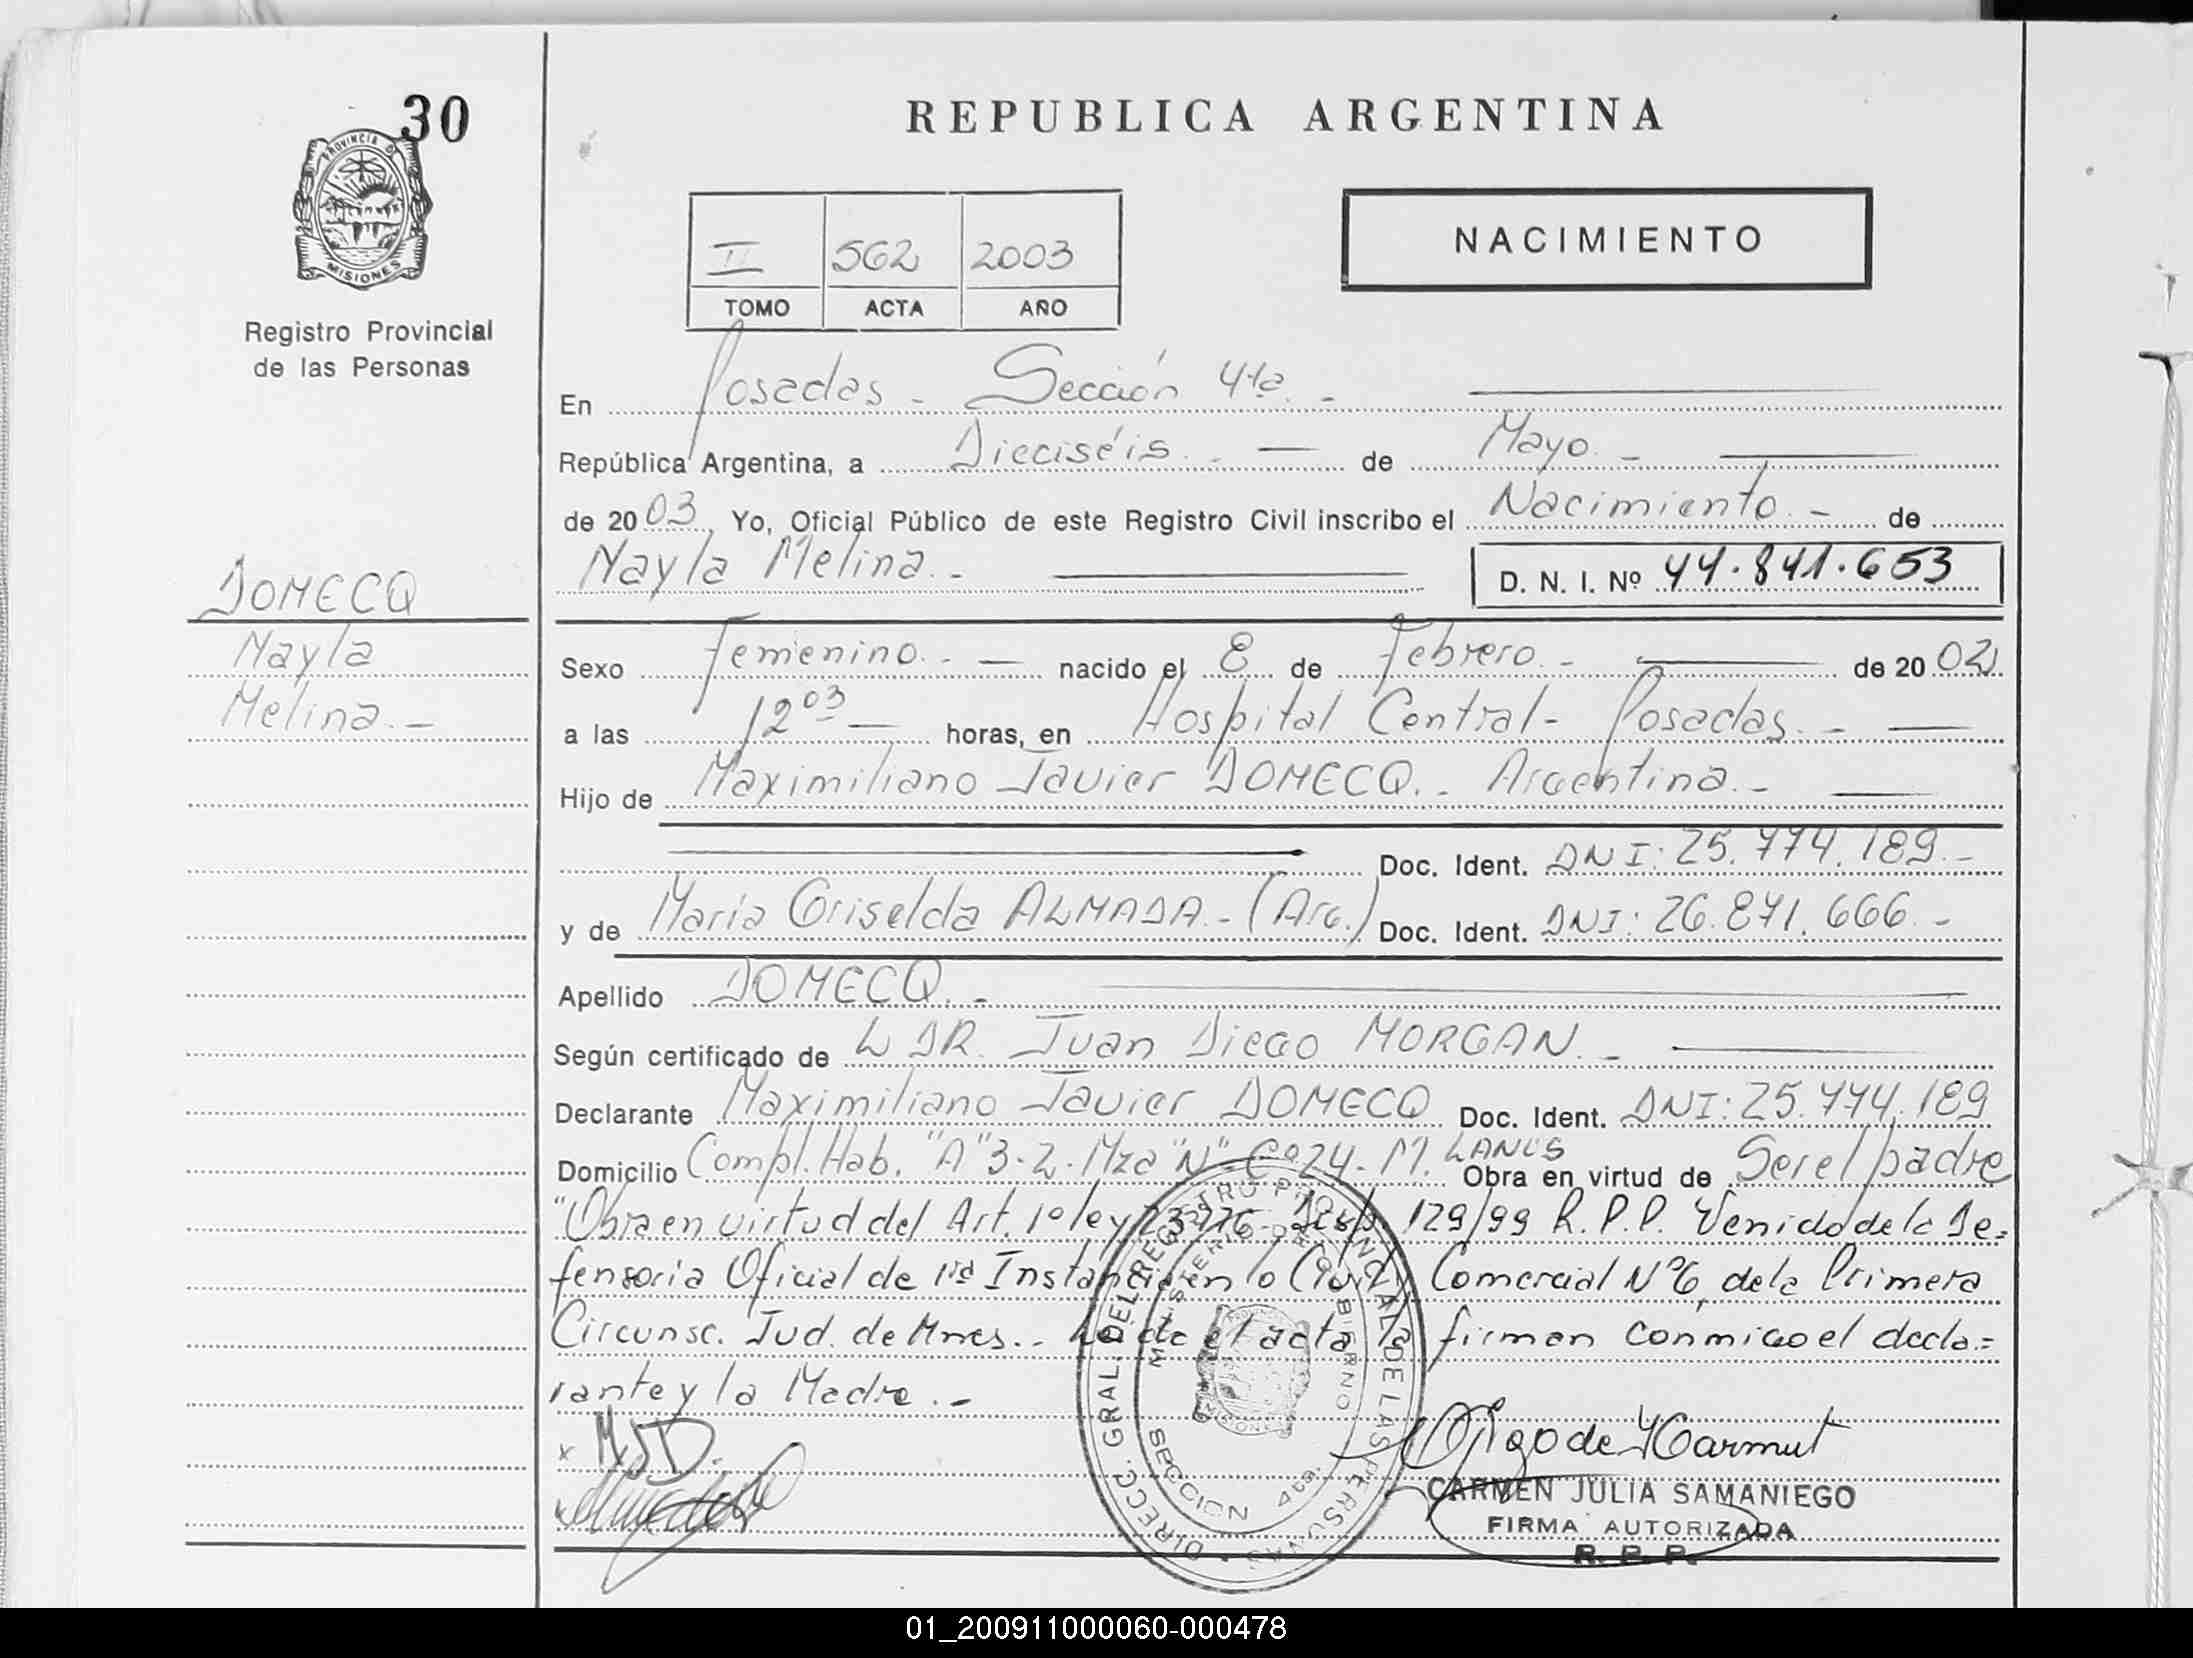 30
PROVINCIA D
MISIONES
Registro Provincial
de las Personas
DOMECQ
Nayla
Melina.-
REPUBLICA ARGENTINA
NACIMIENTO
II 562 2003
TOMO ACTA AÑO
En Posadas - Sección 4ta.-
República Argentina, a Dieciséis.- de Mayo.-
de 2003, Yo, Oficial Público de este Registro Civil inscribo el Nacimiento.- de
Nayla Melina.- D. N. I. Nº 44.841.653
Sexo Femenino.- nacido el 8 de Febrero.- de 2002
a las 12 03 horas, en Hospital Central - Posadas.-
Hijo de Maximiliano Javier DOMECQ.- Argentina.-
Doc. Ident. DNI: 25.774.189.-
y de María Griselda ALMADA.- (Arg.) Doc. Ident. DNI: 26.871.666.-
Apellido DOMECQ.-
Según certificado de DR. Juan Diego MORGAN.-
Declarante Maximiliano Javier DOMECQ Doc. Ident. DNI: 25.774.189
Domicilio Compl. Hab. "A" 3-2. Mza "N" Cª 24 - M. LANUS Obra en virtud de Ser el padre
"Obra en virtud del Art. 1º ley Disp. 129/99 R.P.P. Venido de la De=
fensoria Oficial de 1ra Instancia en lo Civil y Comercial Nº 6, de la Primera
Circunsc. Jud. de Mnes.- Leida el acta la firman conmigo el decla=
rante y la Madre.-
x MJD.
CARMEN JULIA SAMANIEGO
FIRMA AUTORIZADA
R. P. P.
DIRECC. GRAL. DEL REGISTRO PROVINCIAL DE LAS PERSONAS
MINISTERIO DE GOBIERNO
SECCION 4ta.
01_200911000060-000478